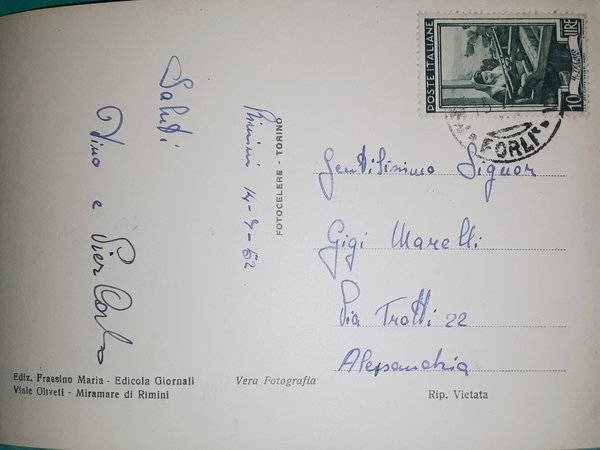 Saluti
Pino e Pier Carlo
Rimini 14-7-52
FOTOCELERE - TORINO
POSTE ITALIANE
LIRE
10
FORLI
Gentilissimo Signor
Gigi Marelli
Via Trotti 22
Alessandria
Ediz. Frassino Maria - Edicola Giornali
Viale Oliveti - Miramare di Rimini
Vera Fotografia
Rip. Vietata